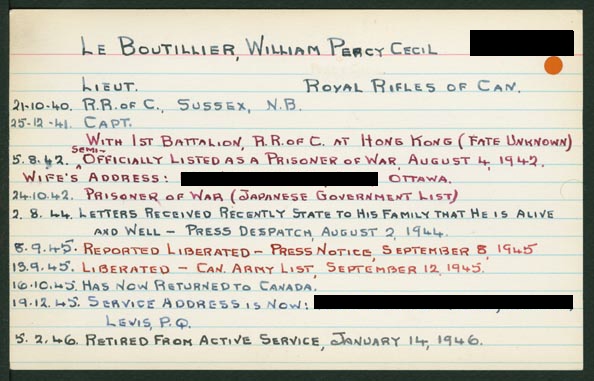 LE BOUTILLIER, WILLIAM PERCY CECIL
LIEUT. ROYAL RIFLES OF CAN.
21-10-40. R.R. OF C., SUSSEX, N.B.
25-12-41. CAPT.
WITH 1ST BATTALION, R.R. OF C. AT HONG KONG (FATE UNKNOWN)
SEMI-
5.8.42. OFFICIALLY LISTED AS A PRISONER OF WAR, AUGUST 4, 1942.
WIFE'S ADDRESS: OTTAWA.
24.10.42. PRISONER OF WAR (JAPANESE GOVERNMENT LIST)
2.8.44. LETTERS RECEIVED RECENTLY STATE TO HIS FAMILY THAT HE IS ALIVE
AND WELL – PRESS DESPATCH, AUGUST 2, 1944.
8.9.45. REPORTED LIBERATED – PRESS NOTICE, SEPTEMBER 8, 1945
13.9.45. LIBERATED – CAN. ARMY LIST, SEPTEMBER 12, 1945.
16.10.45. HAS NOW RETURNED TO CANADA.
19.12.45. SERVICE ADDRESS IS NOW:
LEVIS, P.Q.
5.2.46. RETIRED FROM ACTIVE SERVICE, JANUARY 14, 1946.